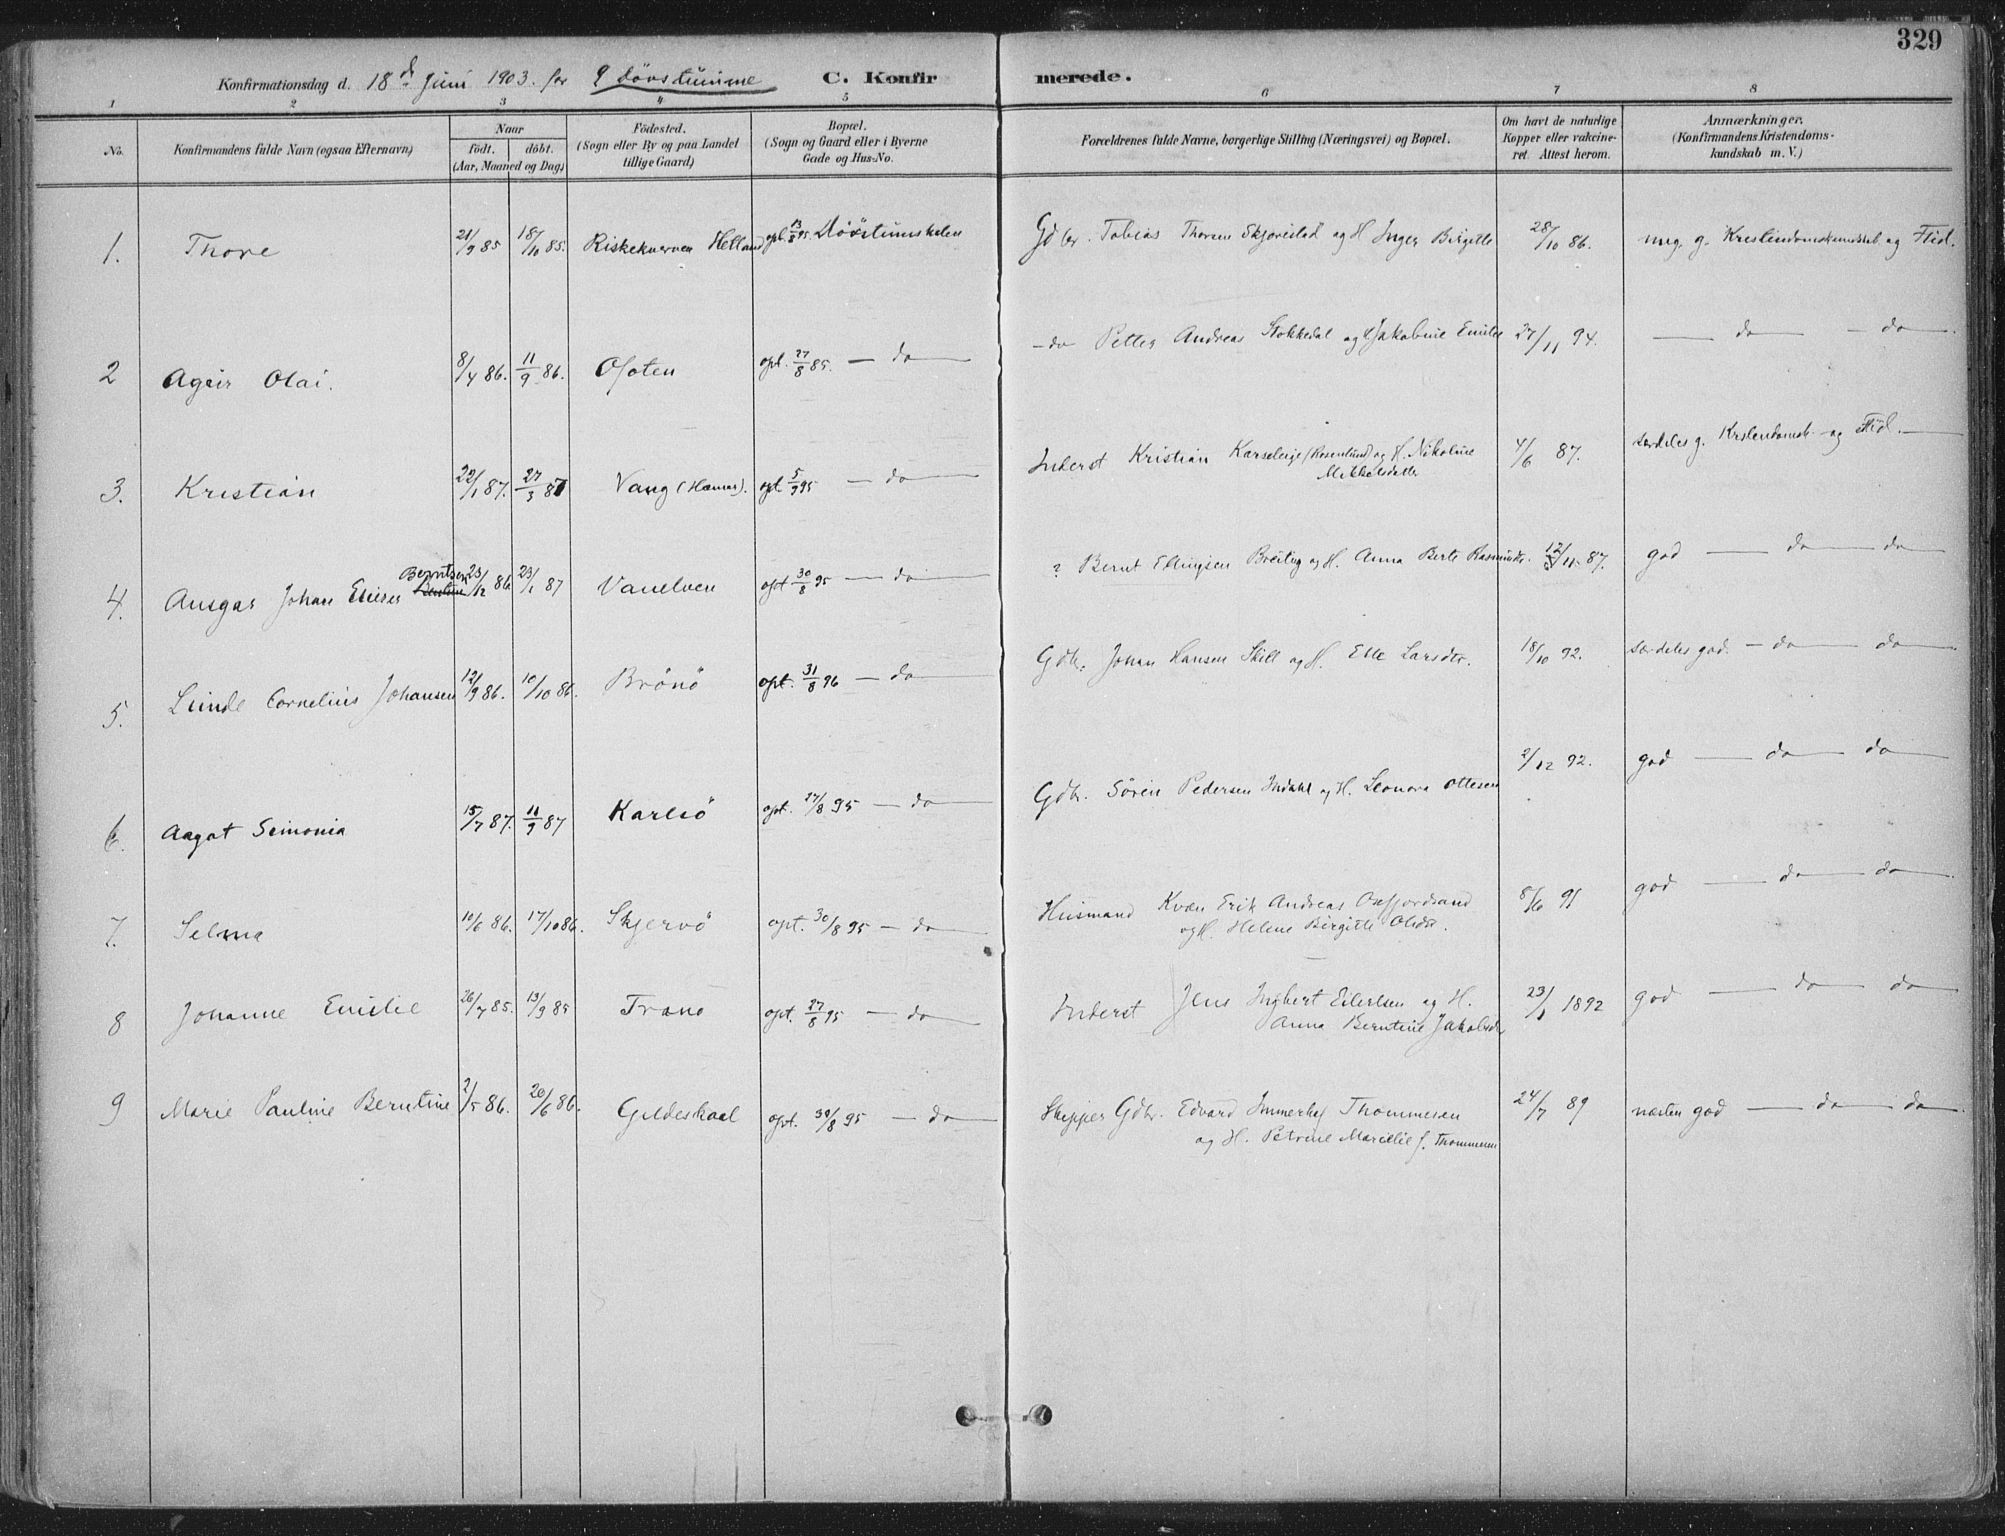 329
Konfirmationsdag d. 18de Juni 1903. for 9 Dövstumme C. Konfirmerede.
1 2 3 4 5 6 7 8
No. Konfirmandens fulde Navn (ogsaa Efternavn) Naar födt. döbt. (Aar, Maaned og Dag) Födested. (Sogn eller By og paa Landet tillige Gaard) Bopæl. (Sogn og Gaard eller i Byerne Gade og Hus-No. Forældrenes fulde Navne, borgerlige Stilling (Næringsvei) og Bopæl. Om havt de naturlige Kopper eller vakcineret. Attest herom. Anmærkninger. (Konfirmandens Kristendomskundskab m. V.)
1. Thore 21/9 85 18/10 85. Riskekverven Hetland opt. 13/8 95 Gdbr. Tobias Thorsen Skjörestad og H Inger Birgitte 28/10 86. meg. g. Kristendomskundskab og Flid.
2 Ageir Olai. 8/4 86. 11/9 86. Ofoten opt. 27/8 85. — do — – do Petter Andreas Stokkedal og H Jakobine Emilie 27/11 94. — do — do —
3. Kristian 22/1 87. 27/3 87 Vang (Hamar). opt 5/9 95 — do — Inderst Kristian (Rosenlund) og H. Nikoline Mikkelsdatter 4/6 87. særdeles g. Kristendomsk. og Flid. —
4. Ansgar Johan Berntsen 23/12 86 23/1 87 Vanelven opt 30/8 95 — do — ? Bernt Ellingsen og H. Anna Berte Rasmusdr. 12/11 87. god — do — do
5. Linde Cornelius Johansen 12/9 86. 10/10 86. Brönö opt. 31/8 96 — do — Gdbr. Johan Hansen Skill og H. Else Larsdtr. 18/10 92. særdeles god. — do — do —
6. Aagot Simonia 15/7 87. 11/9 87 Karlsö opt. 27/8 95 — do — Gdbr. Sören Pedersen Indahl og H. Leonora Ottesen 2/12 92. god — do — do —
7. Selma 10/6 86. 17/10 86. Skjervö opt. 30/8 95 — do — Husmand Kvæn Erik Andreas Oxfjordsand og H. Helene Birgitte Olsdr. 8/6 91 god — do — do —
8 Johanne Emilie 26/7 85. 13/9 85 Tranö opt. 27/8 95 — do — Inderst Jens Ingbert Eilertsen og H. Anna Berntine Jakobsdr 23/1 1892 god — do — do
9 Marie Pauline Berntine 2/5 86. 20/6 86. Gildeskaal opt. 30/8 95 — do — Skipper Gdbr. Edvard Thommesen og H. Petrine f. Thommesen 24/7 89 næsten god — do — do —